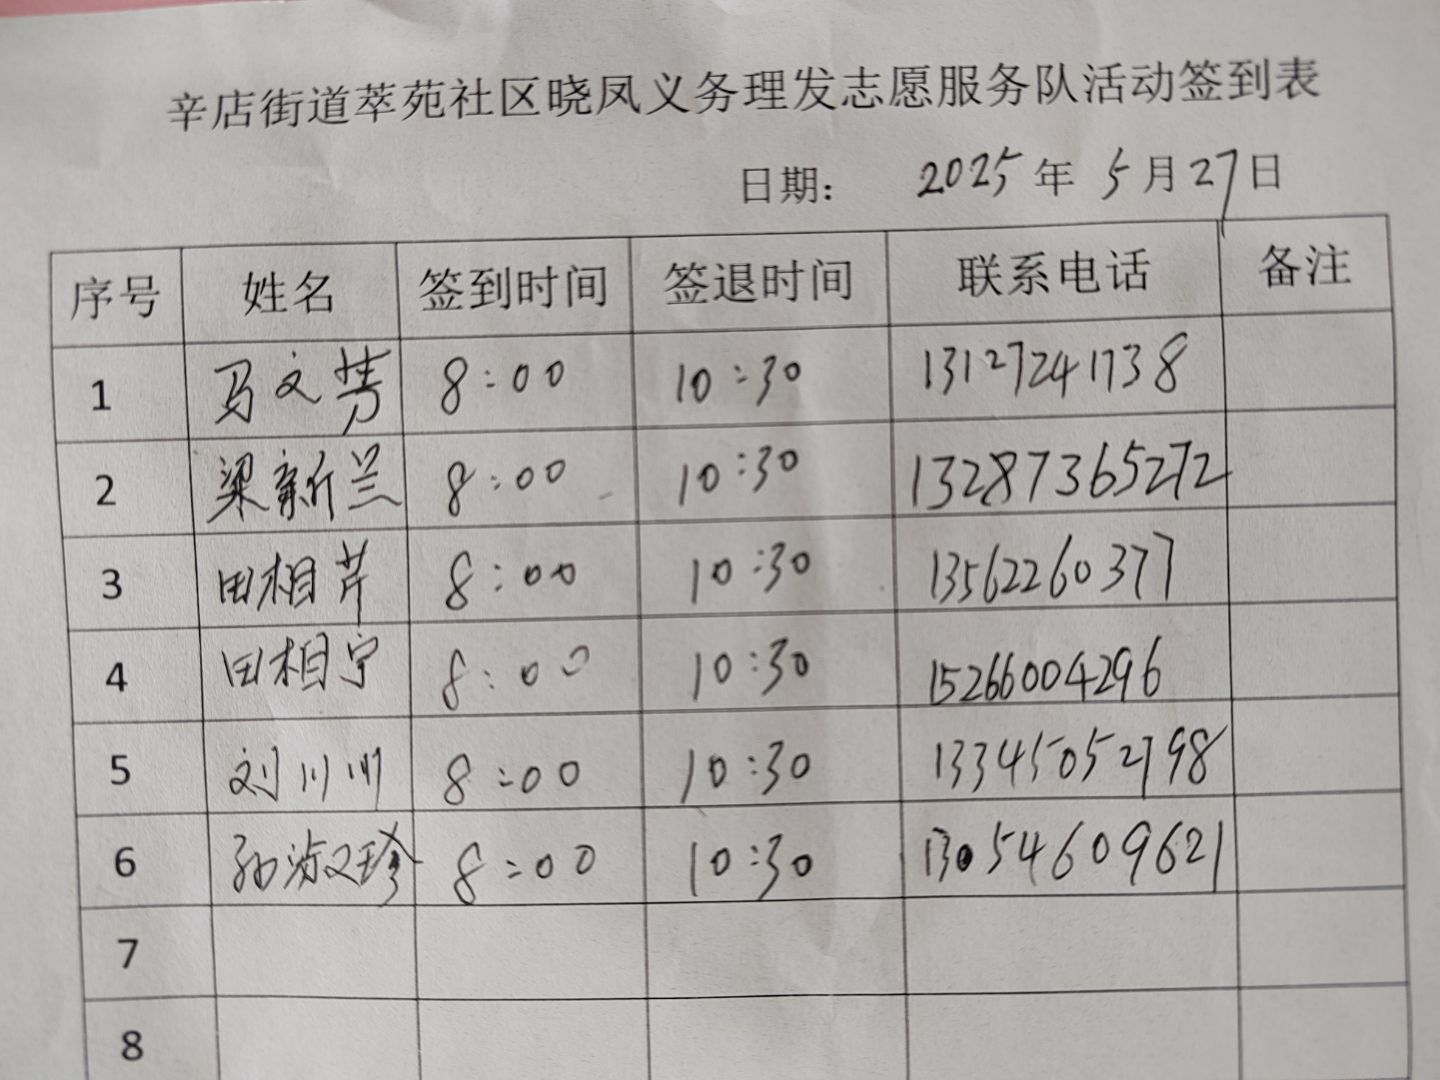 辛店街道萃苑社区晓凤义务理发志愿服务队活动签到表
日期: 2025年5月27日
序号 姓名 签到时间 签退时间 联系电话 备注
1 马文芳 8:00 10:30 13127241738
2 梁新兰 8:00 10:30 13287365272
3 田相芹 8:00 10:30 13562260377
4 田相宁 8:00 10:30 15266004296
5 刘川川 8:00 10:30 13345052798
6 孙淑珍 8:00 10:30 13054609621
7
8